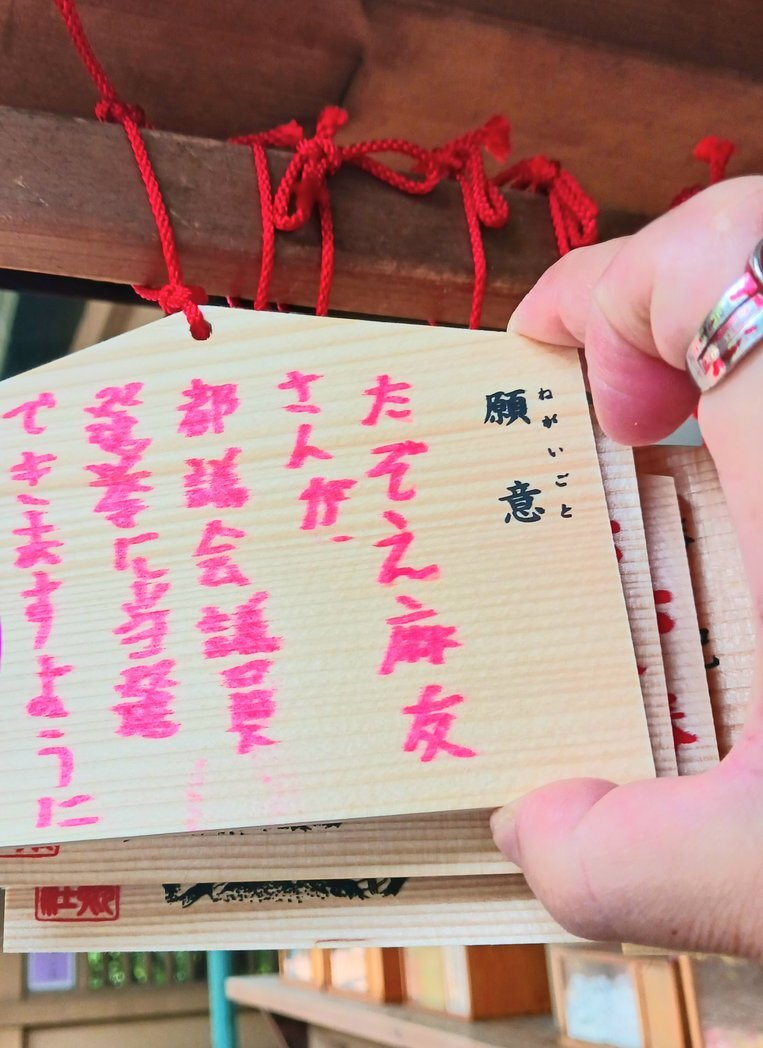 願意
ねがいごと
たぞえ麻友
さんが、
都議会議員
選挙に当選
できますように